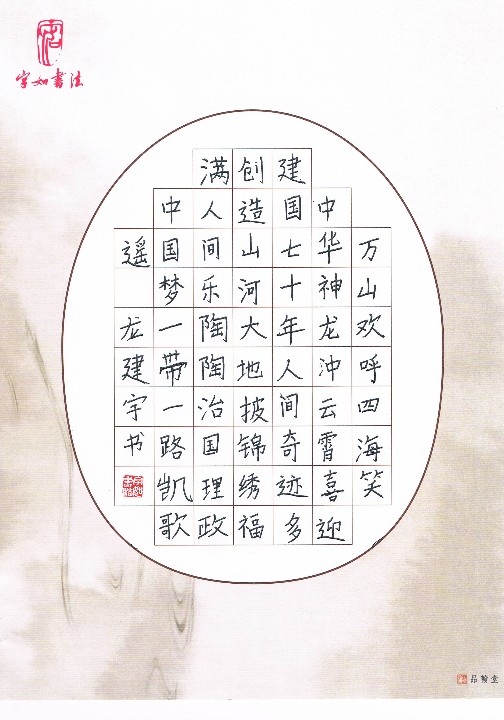 字如書法
万山欢呼四海笑
中华神龙冲云霄喜迎
建国七十年人间奇迹多
创造山河大地披锦绣福
满人间乐陶陶治国理政
中国梦一带一路凯歌
遥 龙建宇书
品翰堂